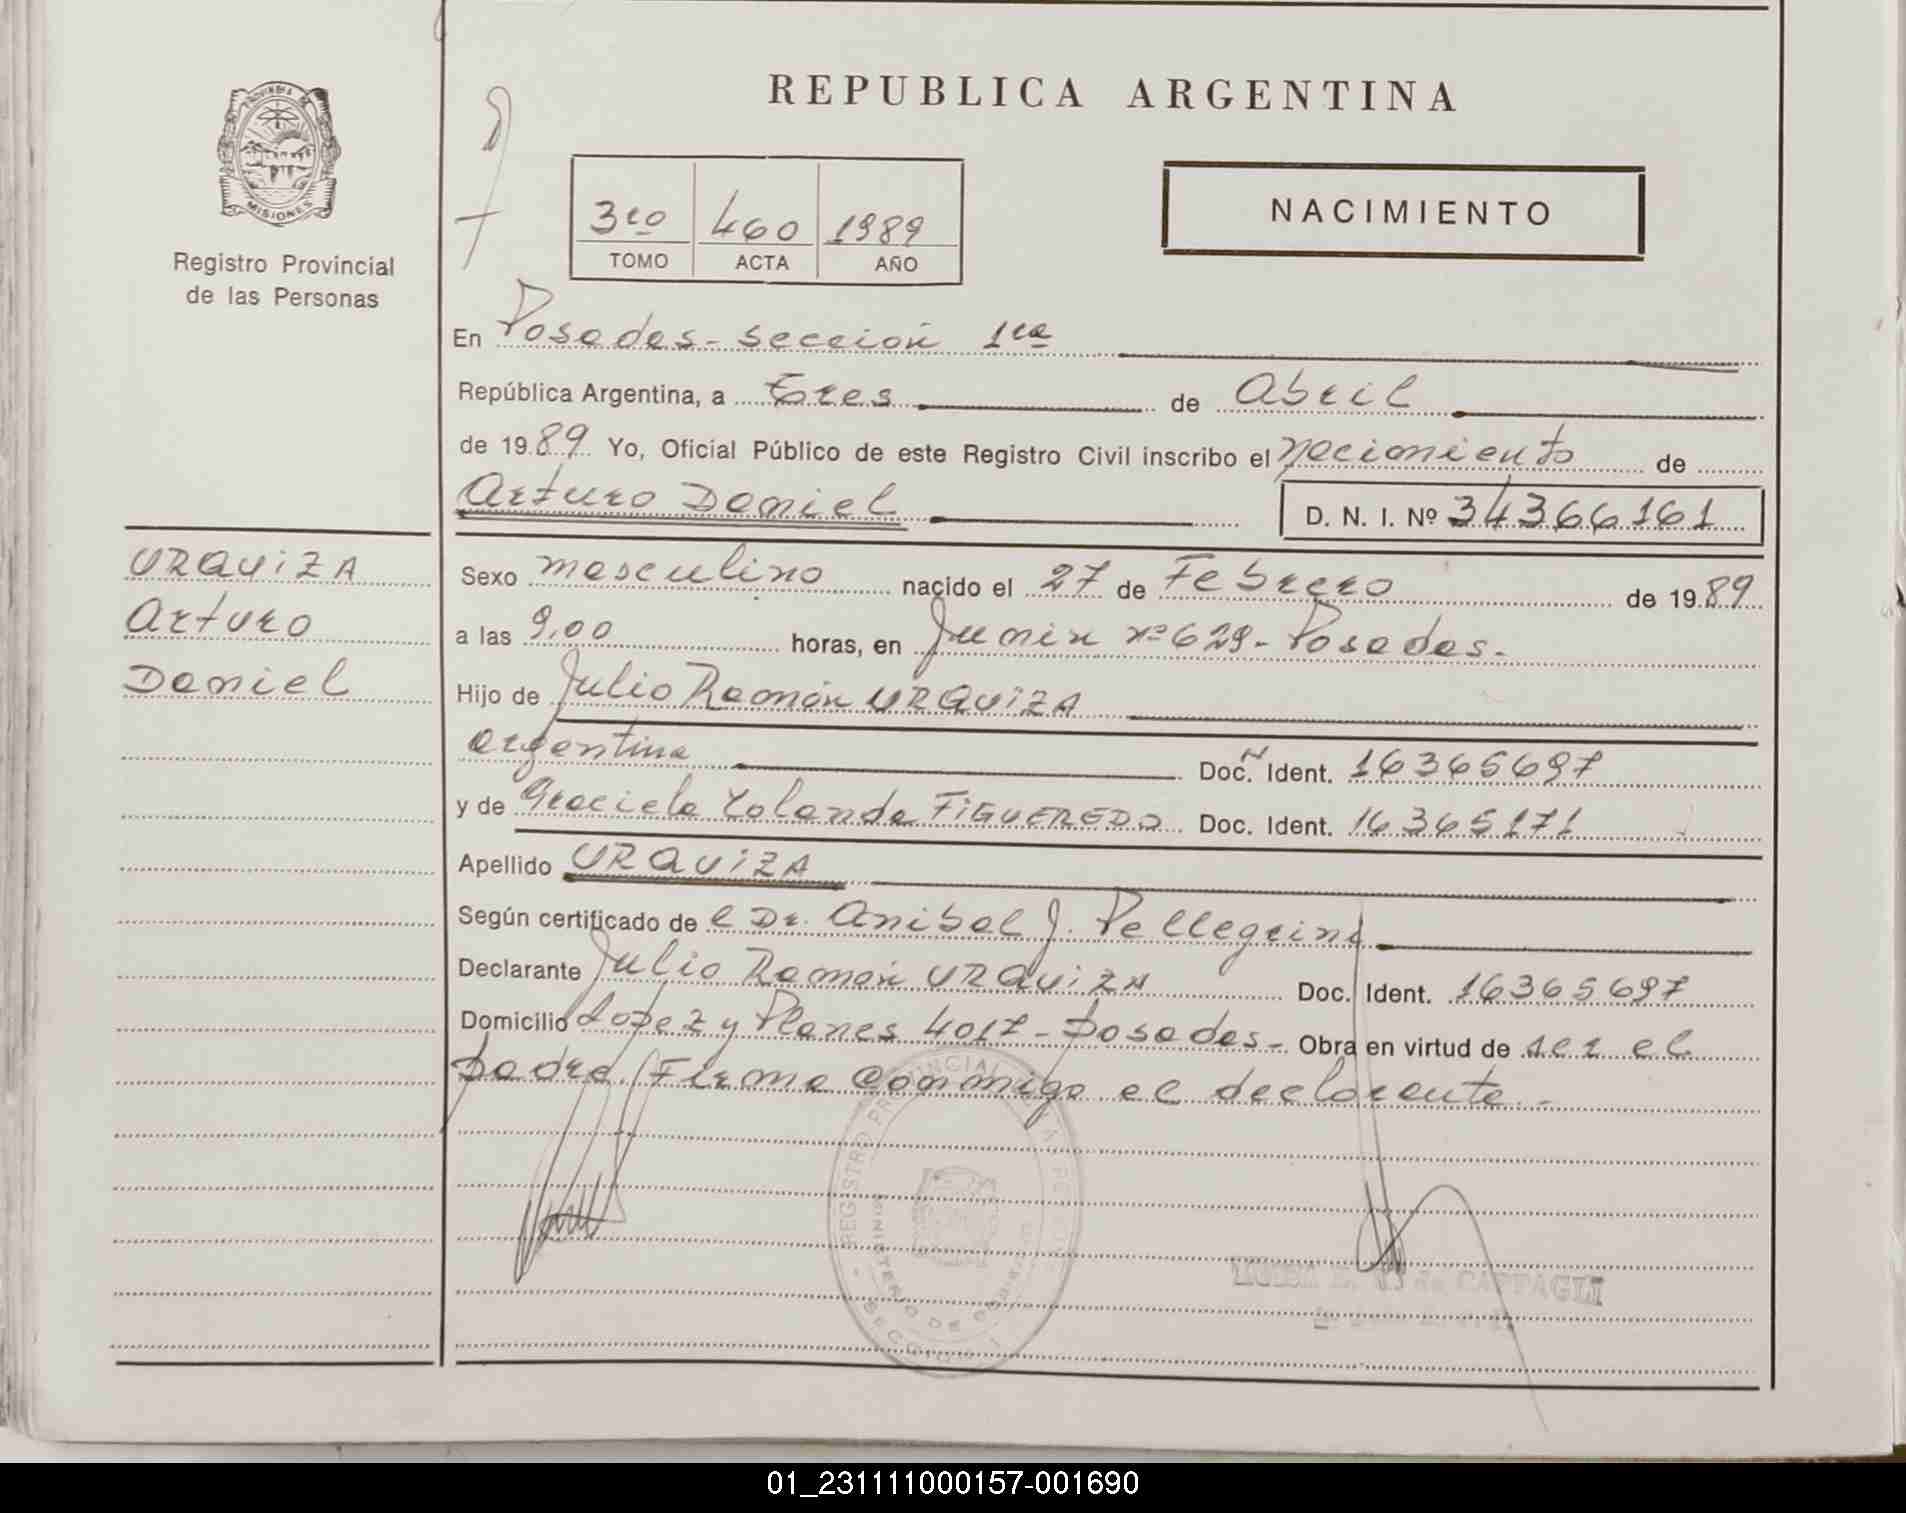 REPUBLICA ARGENTINA
PROVINCIA DE
MISIONES
Registro Provincial
de las Personas
3ro 460 1989
TOMO ACTA AÑO
NACIMIENTO
En Posadas - sección 1ra
República Argentina, a tres de Abril
de 1989 Yo, Oficial Público de este Registro Civil inscribo el nacimiento de
Arturo Daniel D. N. I. Nº 34366161
URQUIZA
Arturo
Daniel
Sexo masculino nacido el 27 de Febrero de 1989
a las 9,00 horas, en Junin nº 629 - Posadas.
Hijo de Julio Ramón URQUIZA
argentina Doc. Ident. 16365697
y de Graciela Yolanda FIGUEREDO Doc. Ident. 16365171
Apellido URQUIZA
Según certificado de el Dr. Anibal J. Pellegrini
Declarante Julio Ramón URQUIZA Doc. Ident. 16365697
Domicilio Lopez y Planes 4017 - Posadas - Obra en virtud de ser el
padre. Firma conmmigo el declarante. -
REGISTRO PROVINCIAL DE LAS PERSONAS
MINISTERIO DE GOBIERNO
SECCION 1
de CAPPAGLI
01_231111000157-001690